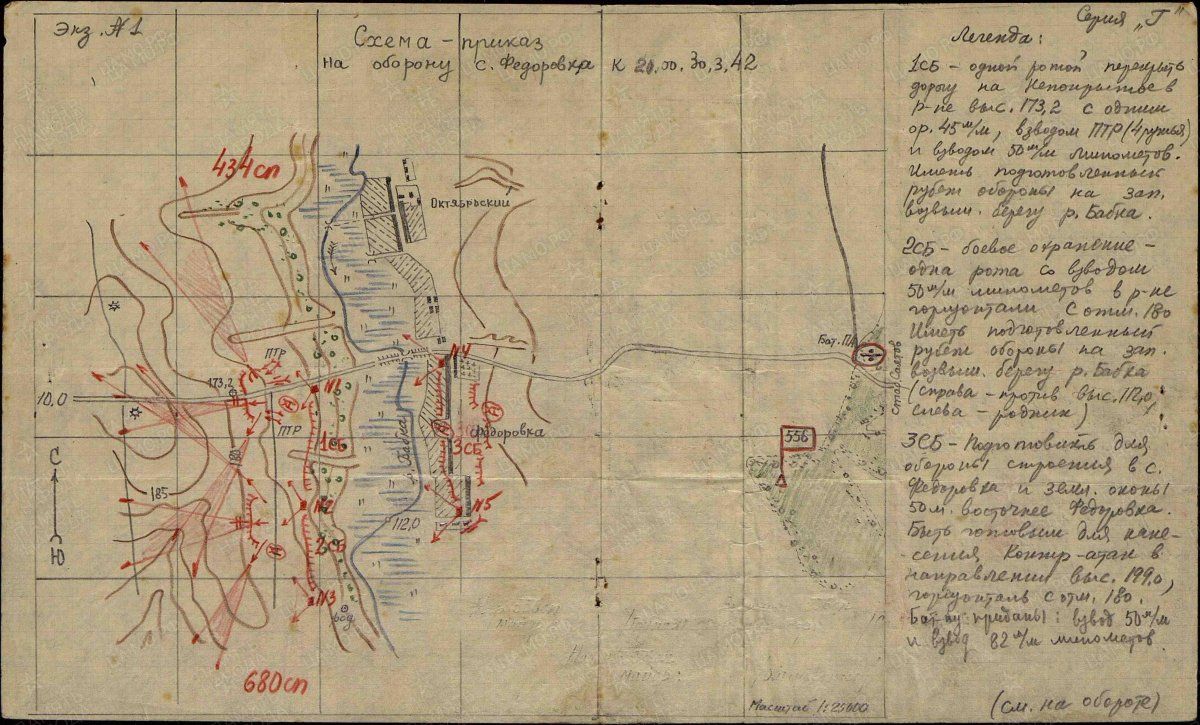 Экз. №1
Серия „Г"
Схема - приказ
на оборону с. Федоровка к 20.00. 30,3,42
Легенда:
1СБ - одной ротой перекрыть
дорогу на Непокрытое в
р-не выс. 173,2 с одним
ор. 45 м/м, взводом ПТР (4 ружья)
и взводом 50 м/м минометов.
Иметь подготовленный
рубеж обороны на зап.
возвыш. берегу р. Бабка.
2СБ - боевое охранение -
одна рота со взводом
50 м/м минометов в р-не
горизонтали с отм. 180
Иметь подготовленный
рубеж обороны на зап.
возвыш. берегу р. Бабка
(справа - против выс. 112,0,
слева - родник)
3СБ - Подготовить для
обороны строения в с.
Федоровка и земл. окопы
50 м. восточнее Федоровка.
Быть готовым для нане-
сения контр-атак в
направлении выс. 199,0,
горизонталь с отм. 180.
Бат-ну приданы: взвод 50 м/м
и взвод 82 м/м минометов.
(см. на обороте)
434 сп
Октябрьский
ПТР
173,2
10,0
№6
№4
ПТР
1СБ
р. Бабка
3СБ
Федоровка
180
185
С
Ю
№2
112,0
№5
2СБ
№3
вод.
680 сп
Бат. ПА
556
Масштаб 1:25000